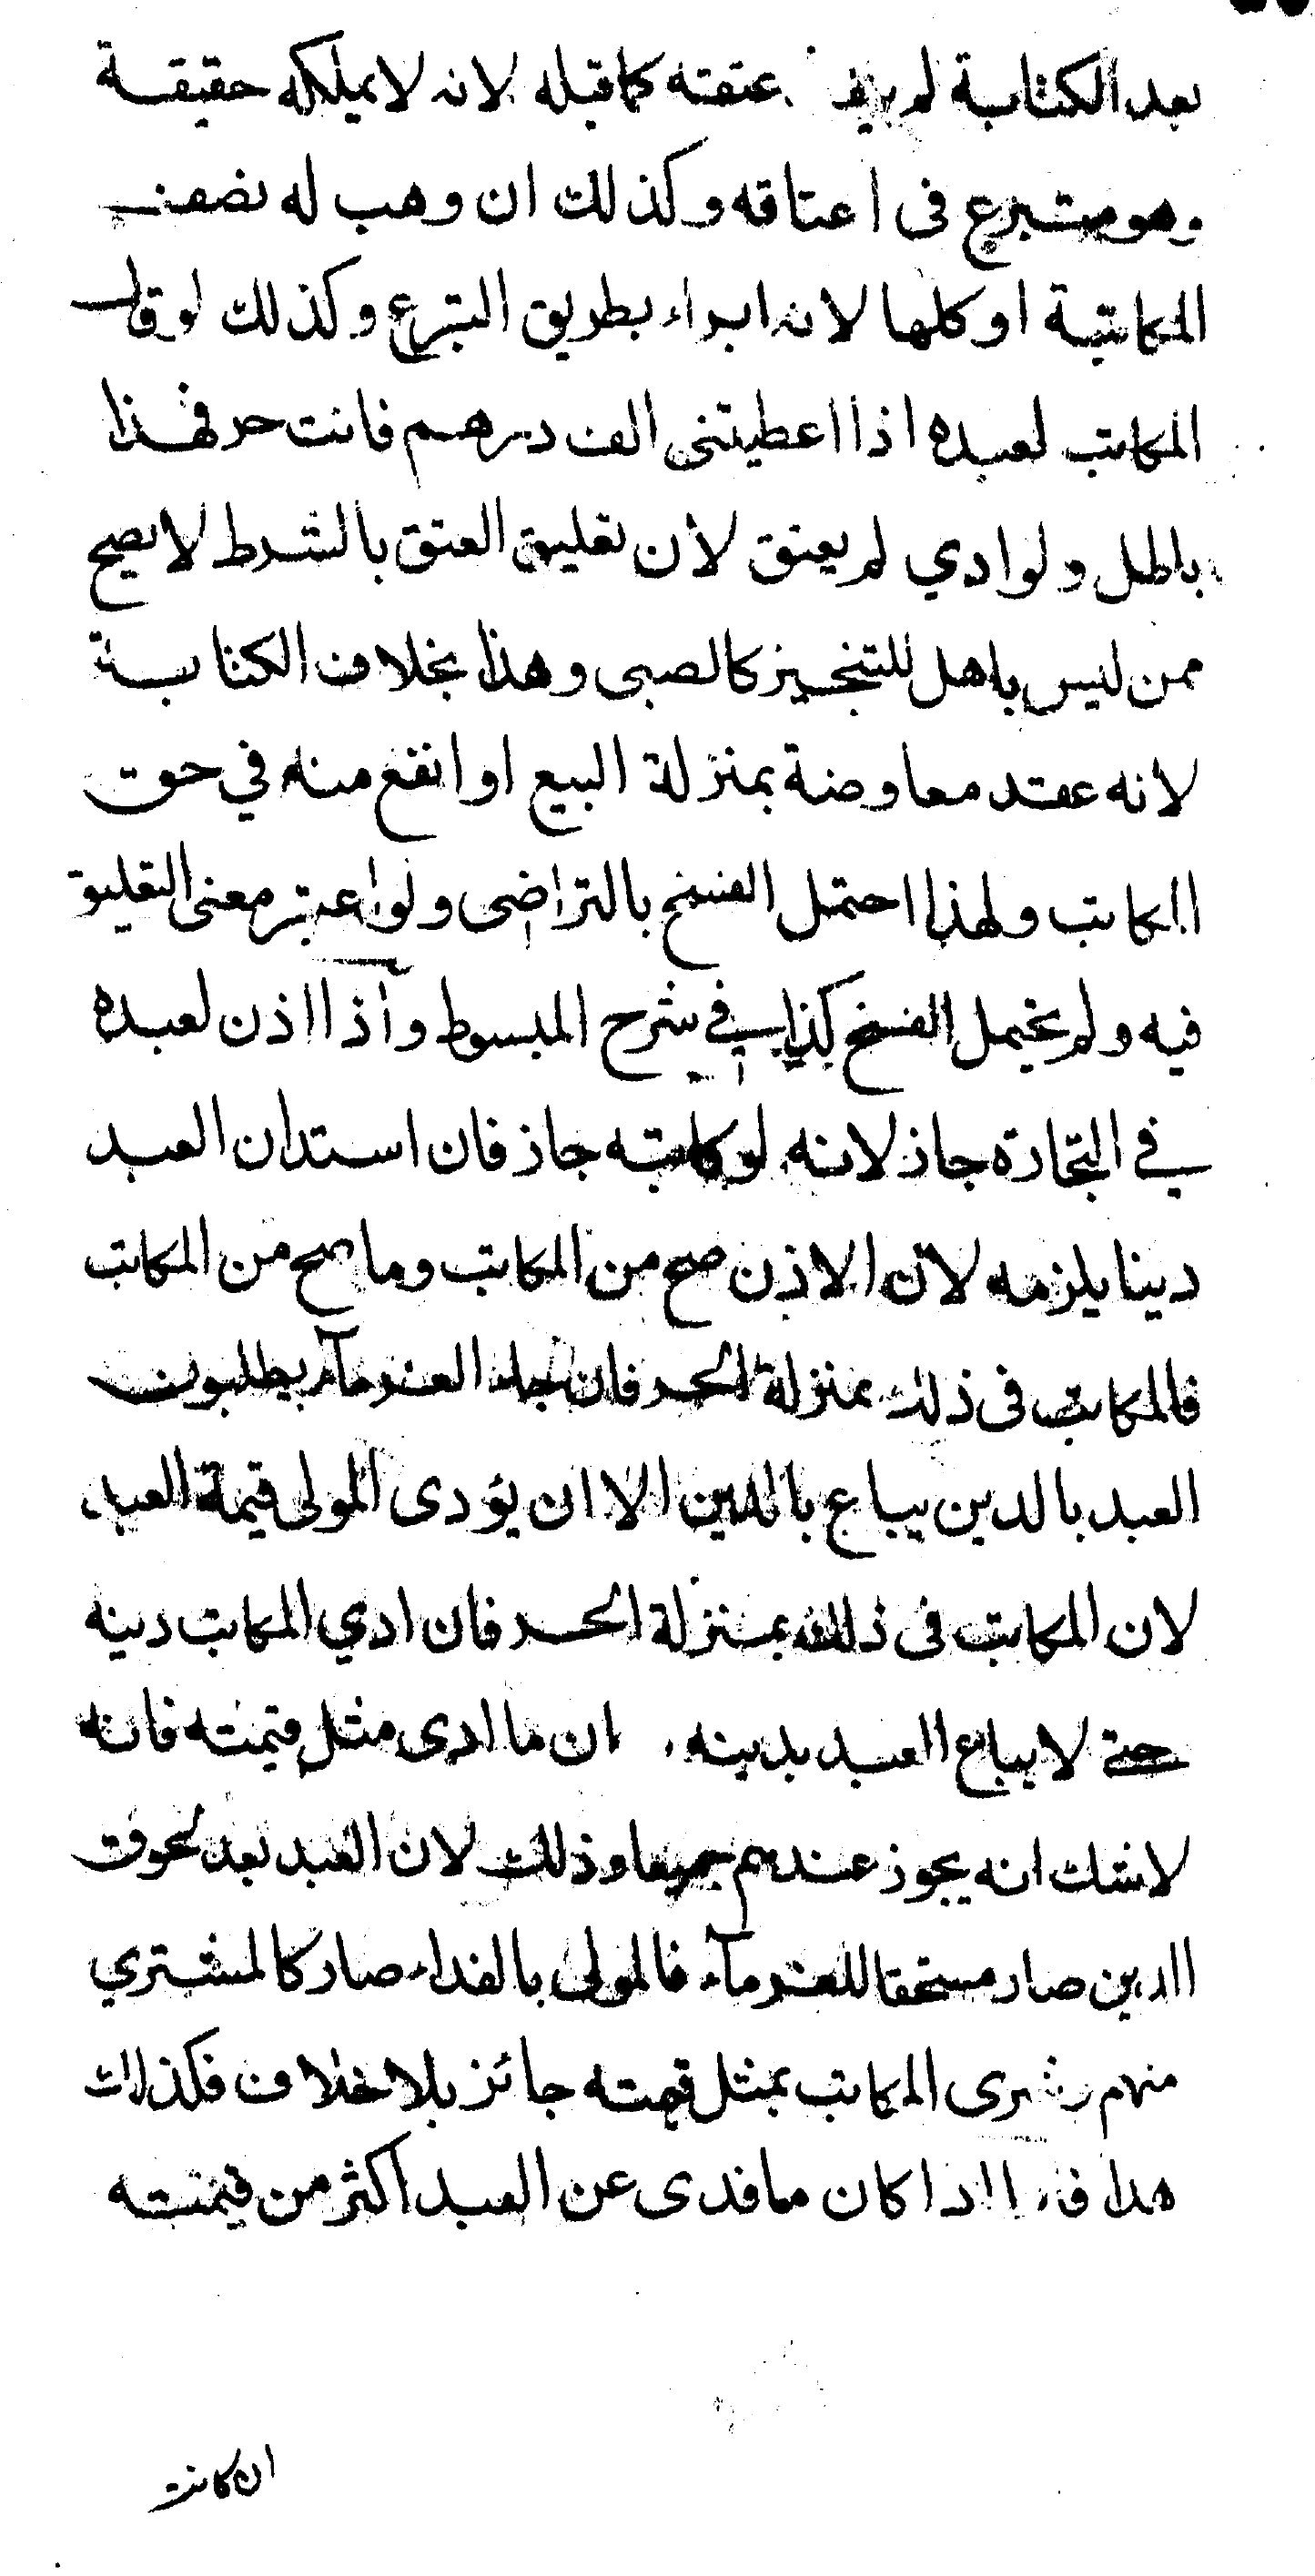 بعد الكتابة لم عتقته كما قبله لانه لا يملكه حقيقة
وهو متبرع فى اعتاقه وكذلك ان وهب له نصف
المكاتبة او كلها لانه ابراء بطريق التبرع وكذلك لو قال
المكاتب لعبده اذا اعطيتنى الف درهم فانت حر فهذا
باطل ولو ادي لم يعتق لأن تعليق العتق بالشرط لا يصح
ممن ليس باهل للتنجيز كالصبى وهذا بخلاف الكتابة
لانه عقد معاوضة بمنزلة البيع او انفع منه في حق
المكاتب ولهذا احتمل الفسخ بالتراضى ولو اعتبر معنى التعليق
فيه ولم يحتمل الفسخ كذا في شرح المبسوط واذا اذن لعبده
في التجارة جاز لانه لو كاتبه جاز فان استدان العبد
دينا يلزمه لان الاذن صح من المكاتب وما صح من المكاتب
فالمكاتب فى ذلك بمنزلة الحر فان جاء الغرمآء يطلبون
العبد بالدين يباع بالدين الا ان يؤدى المولى قيمة العبد
لان المكاتب فى ذلك بمنزلة الحر فان ادي المكاتب دينه
حتى لا يباع العبد بدينه ان ما ادى مثل قيمته فانه
لا شك انه يجوز عندهم جميعا وذلك لان العبد بعد لحوق
الدين صار مستحقا للغرمآء فالمولى بالفداء صار كالمشتري
منهم وشرى المكاتب بمثل قيمته جائز بلا خلاف فكذلك
هذا فاما اذا كان ما فدى عن العبد اكثر من قيمته
ان كانت